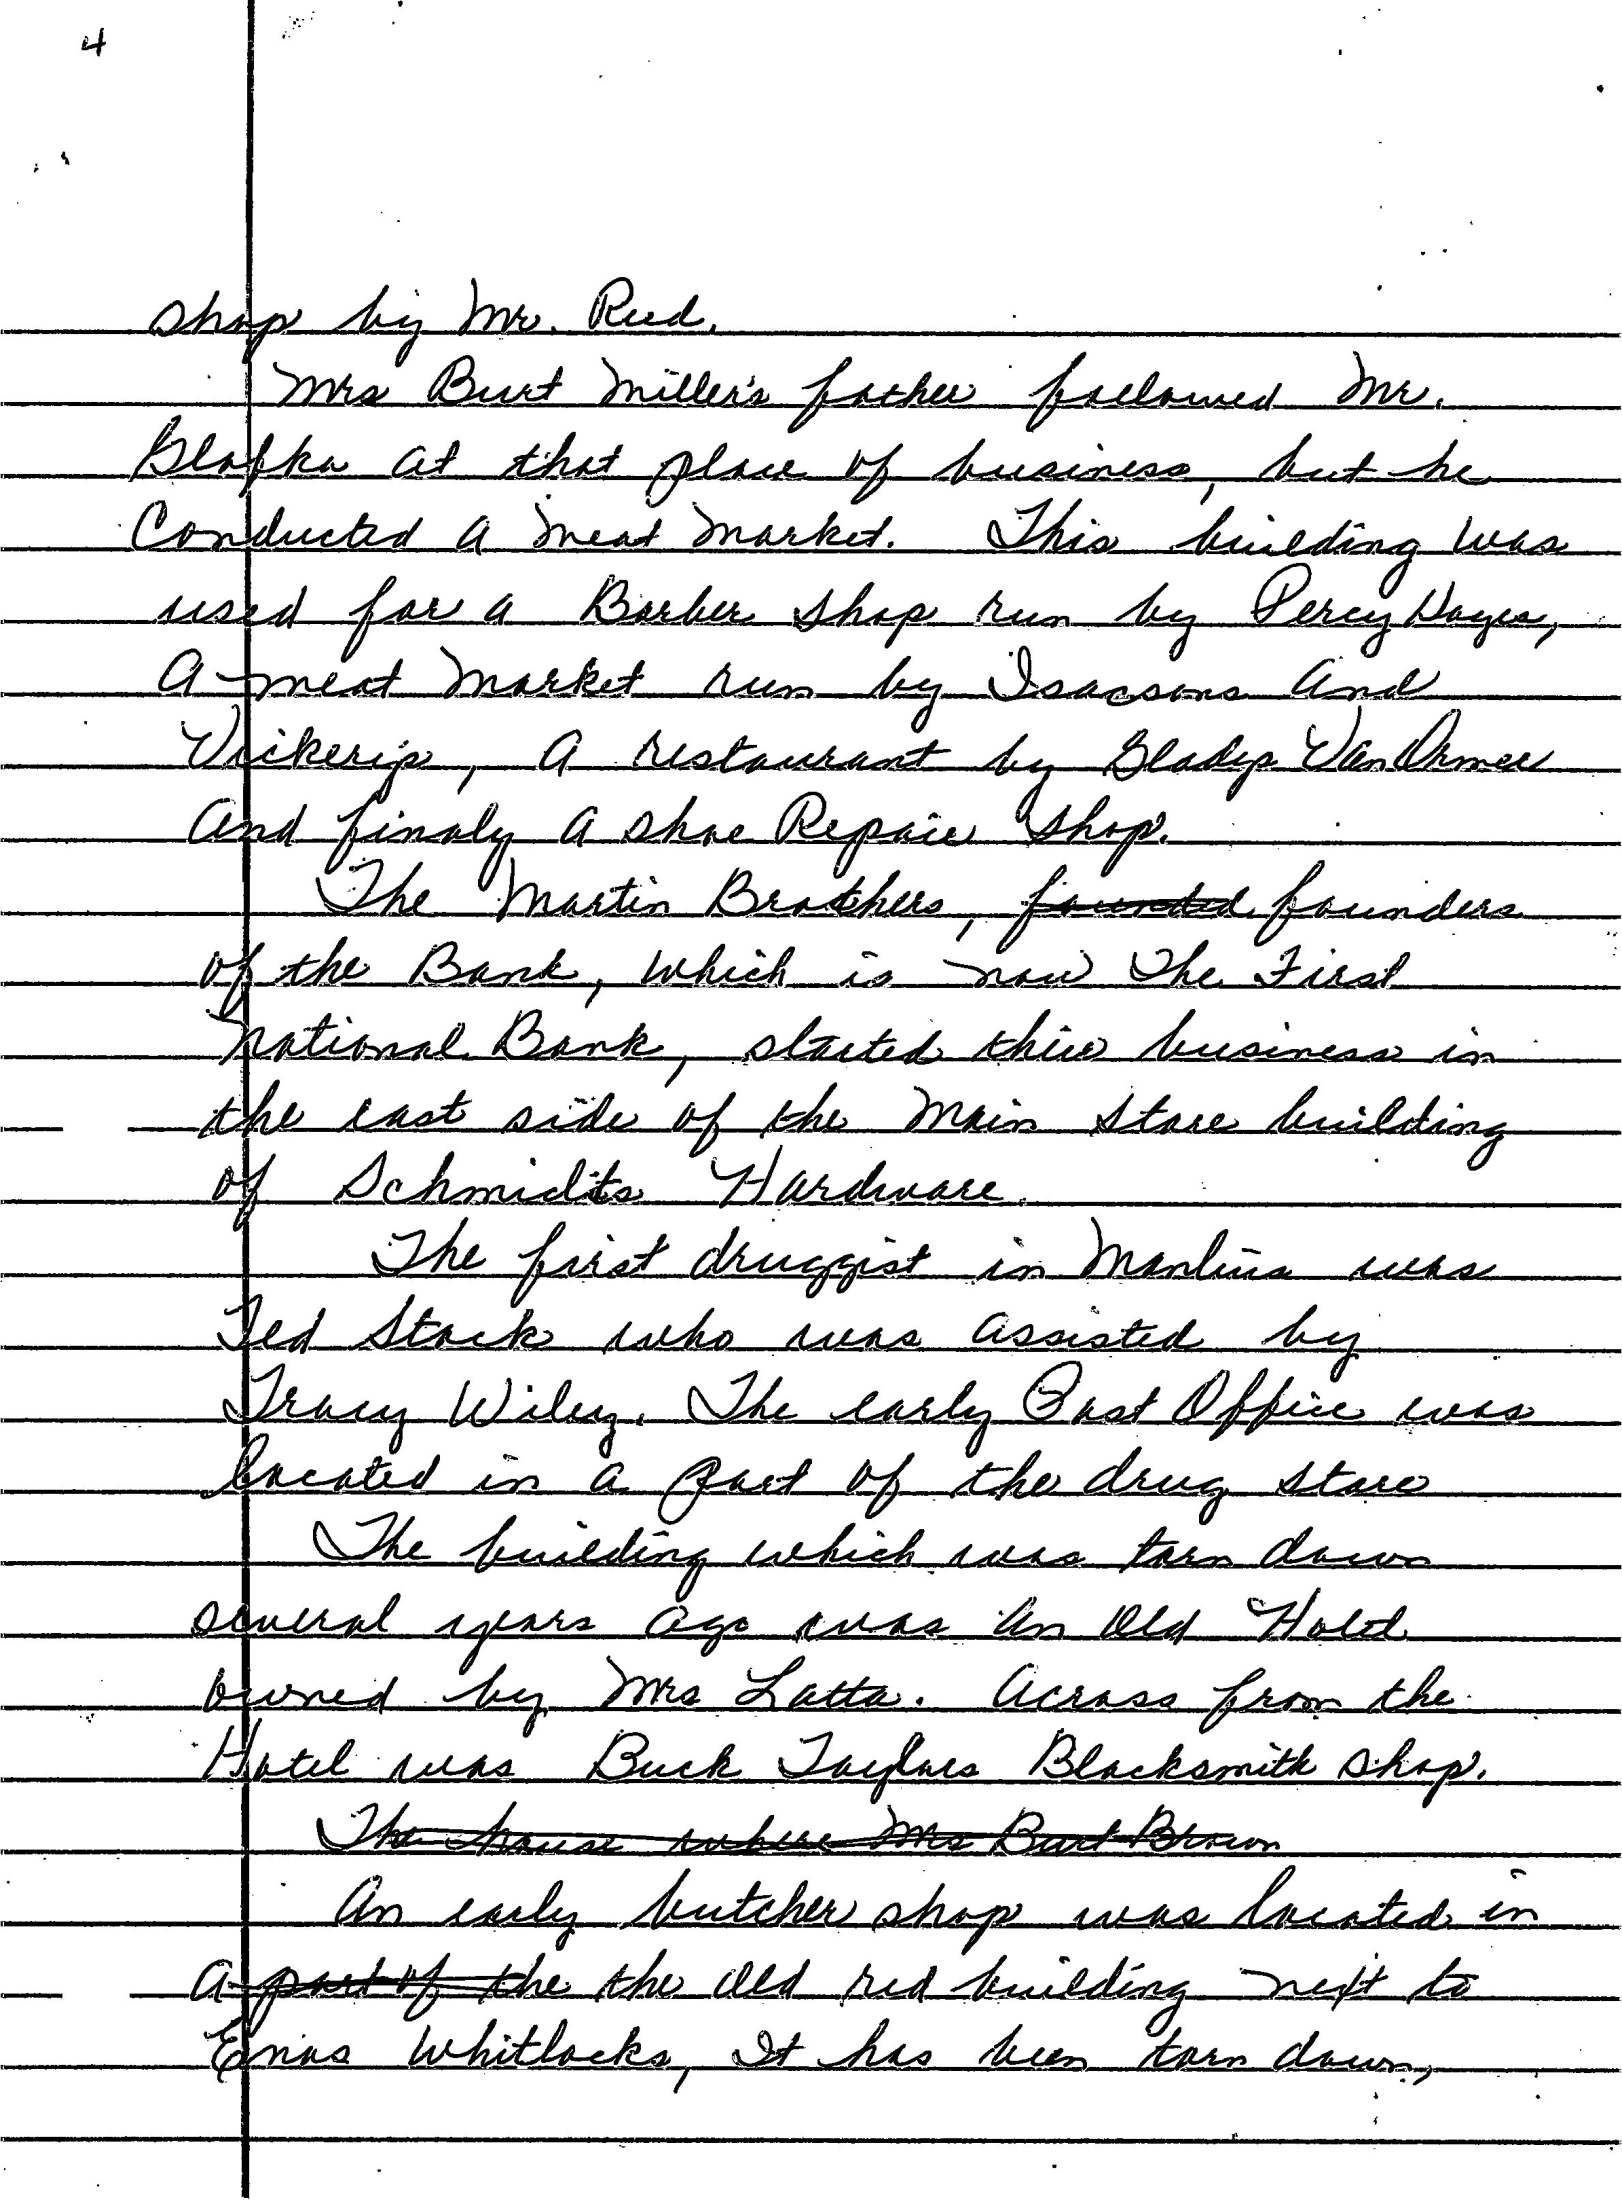 4
shop by Mr. Reed.
Mrs Burt Miller's father followed Mr.
Glafka at that place of business, but he
Conducted a meat market. This building was
used for a Barber shop run by Percy Hayes,
a meat market run by Isacsons and
Vickerip, a restaurant by Gladys Van Ormer
and finaly a shoe Repair shop.
The Martin Brothers, founded founders
of the Bank, which is now The First
National Bank, started thier business in
the east side of the Main Store building
of Schmidts Hardware.
The first druggist in Manlius was
Ted Stack who was assisted by
Tracy Wiley. The early Post Office was
located in a part of the drug store
The building which was torn down
several years ago was an old Hotel
owned by Mrs Latta. Across from the
Hotel was Buck Taylors Blacksmith shop.
The house where Mrs Burt Brown
An early butcher shop was located in
a part of the the old red building next to
Enos Whitlocks, It has been torn down,